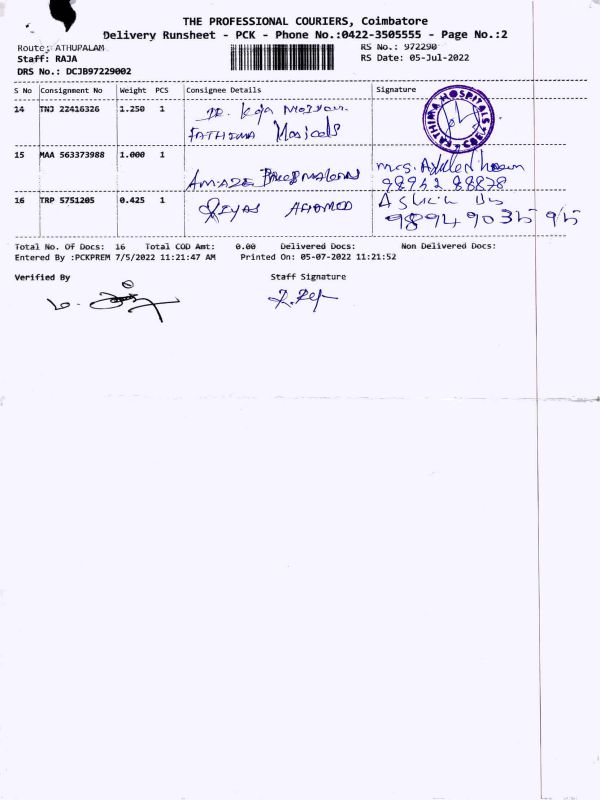 THE PROFESSIONAL COURIERS, Coimbatore
Delivery Runsheet - PCK - Phone No.:0422-3505555 - Page No.:2
Route: ATHUPALAM RS No.: 972290
Staff: RAJA RS Date: 05-Jul-2022
DRS No.: DCJB97229002
S No Consignment No Weight PCS Consignee Details Signature
14 TNJ 22416326 1.250 1 FATHIMA
FATHIMA HOSPITALS
15 MAA 563373988 1.000 1 AMAZE
98942 88878
16 TRP 5751205 0.425 1 RIYAS AHAMED
98949 03595
Total No. Of Docs: 16 Total COD Amt: 0.00 Delivered Docs: Non Delivered Docs:
Entered By :PCKPREM 7/5/2022 11:21:47 AM Printed On: 05-07-2022 11:21:52
Verified By Staff Signature